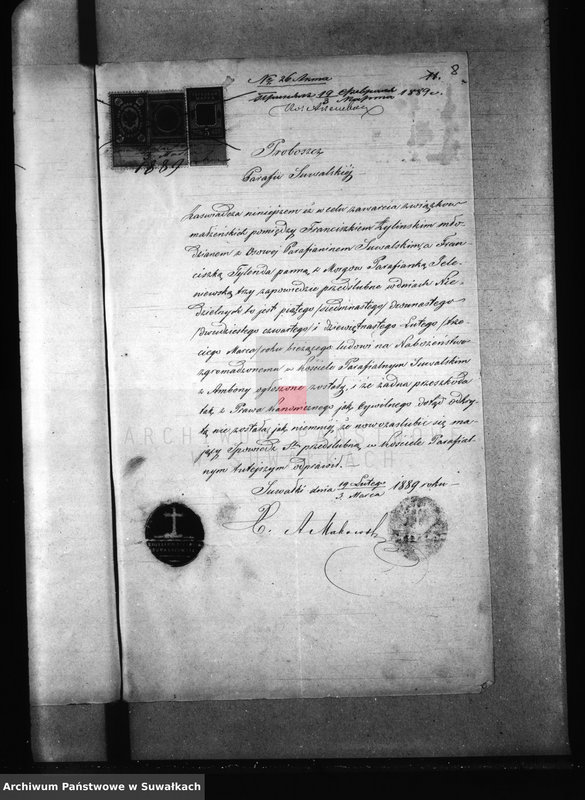 № 26 Анна
11. 8
19 Февраля
3 Марта 1889 г.
1889
Proboszcz
Parafii Suwalskiéj
Zaświadcza niniejszem iż w celu zawarcia związków
małżeńskich pomiędzy Franciszkiem Żylinskim mło-
dzianem z Osowy Parafianinem Suwalskim, a Fran-
ciszką Tylenda panną z Morgów Parafianką Jele-
newską trzy zapowiedzie przedślubne w dniach Nie-
dzielnych to jest piątego /siedmnastego/ dwunastego
/dwudziestego czwartego/ i dziewiętnastego Lutego /trze-
ciego Marca/ roku bieżącego ludowi na Nabożeństwo
zgromadzonemu w kościele Parafialnym Suwalskim
z Ambony ogłoszone zostały, i że żadna przeszkoda
tak z Prawa kanonicznego jak cywilnego dotąd odkry-
tą nie została, jak niemniej, że nowozaślubić się ma-
jący Spowiedź Stą przedślubną w kościele Parafial-
nym tutejszym odprawił.
Suwałki dnia 19 Lutego
3. Marca 1889 roku
X. A Makowski
ARCHIWUM PAŃSTWOWE
W SUWAŁKACH
Archiwum Państwowe w Suwałkach